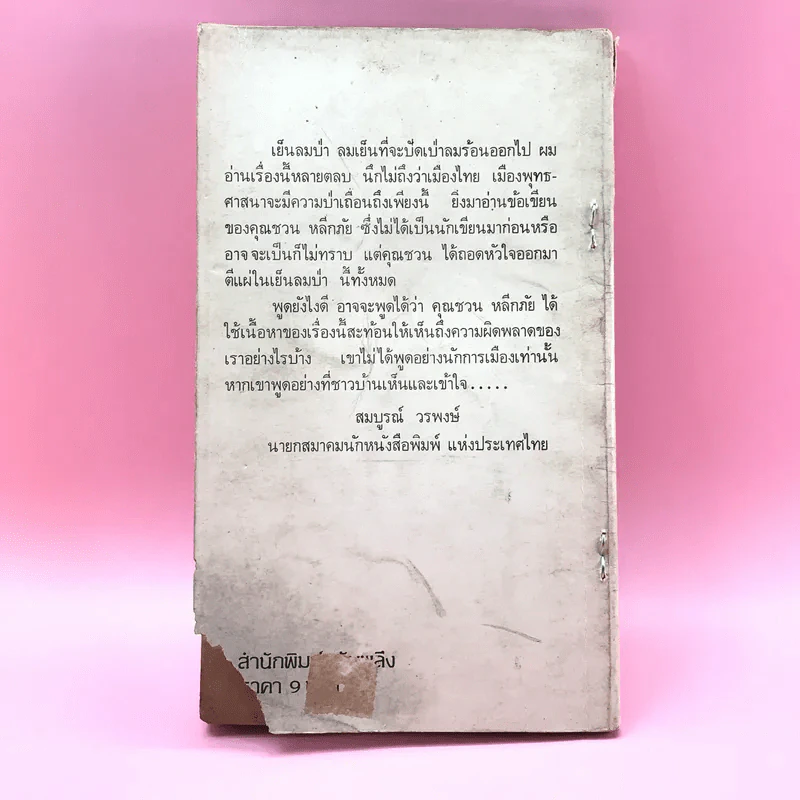 เย็นลมป่า ลมเย็นที่จะปัดเป่าลมร้อนออกไป ผม
อ่านเรื่องนี้หลายตลบ นึกไม่ถึงว่าเมืองไทย เมืองพุทธ-
ศาสนาจะมีความป่าเถื่อนถึงเพียงนี้ ยิ่งมาอ่านข้อเขียน
ของคุณชวน หลีกภัย ซึ่งไม่ได้เป็นนักเขียนมาก่อนหรือ
อาจจะเป็นก็ไม่ทราบ แต่คุณชวน ได้ถอดหัวใจออกมา
ตีแผ่ในเย็นลมป่า นี้ทั้งหมด
พูดยังไงดี อาจจะพูดได้ว่า คุณชวน หลีกภัย ได้
ใช้เนื้อหาของเรื่องนี้สะท้อนให้เห็นถึงความผิดพลาดของ
เราอย่างไรบ้าง เขาไม่ได้พูดอย่างนักการเมืองเท่านั้น
หากเขาพูดอย่างที่ชาวบ้านเห็นและเข้าใจ.....
สมบูรณ์ วรพงษ์
นายกสมาคมนักหนังสือพิมพ์ แห่งประเทศไทย
สำนักพิมพ์
ราคา 9